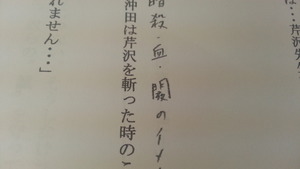 は…芹沢
暗殺・血・闇のイメ
沖田は芹沢を斬った時のこ
れません…」